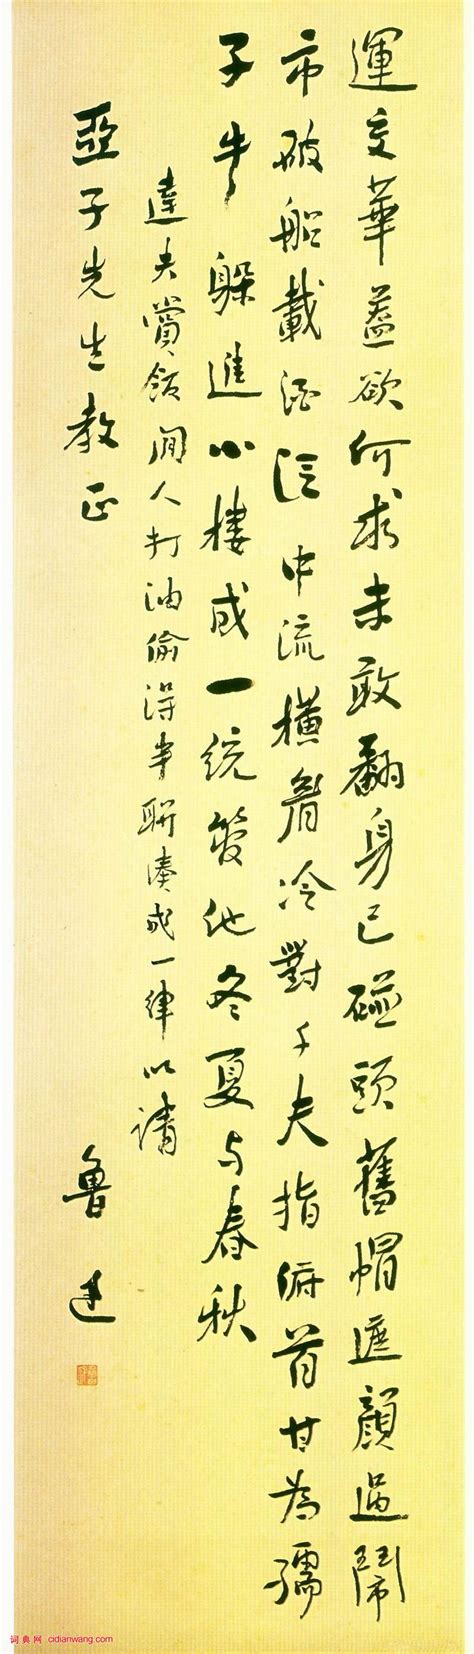 運交華蓋欲何求未敢翻身已碰頭舊帽遮顏過鬧
市破船載酒泛中流橫眉冷對千夫指俯首甘為孺
子牛躲進小樓成一統管他冬夏与春秋
達夫賞飯閒人打油偷得半聯湊成一律以請
亞子先生教正
魯迅
词典网 cidianwang.com